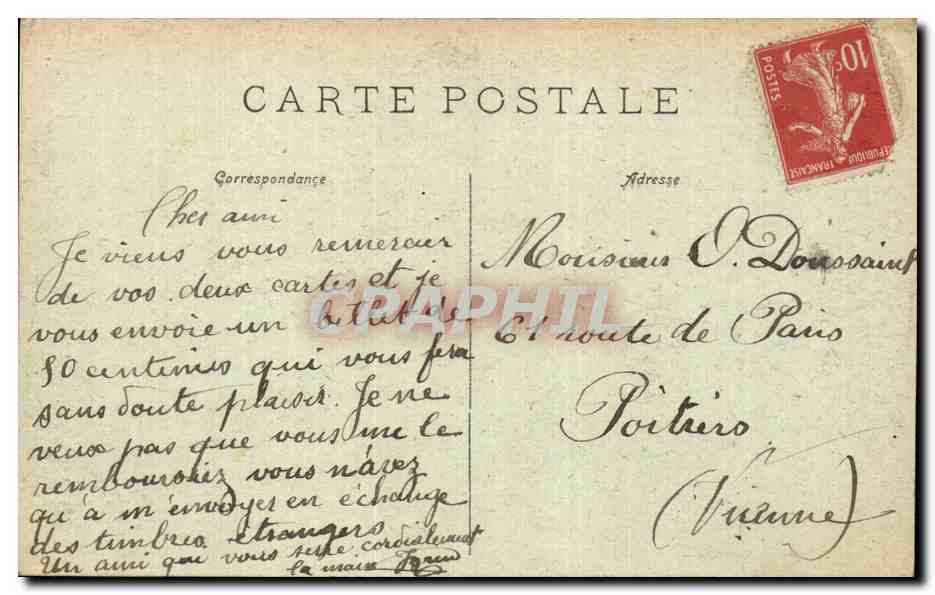 CARTE POSTALE
10c
POSTES
REPUBLIQUE FRANCAISE
Correspondance
Cher ami
Je viens vous remercier
de vos deux cartes et je
vous envoie un billet de
50 centimes qui vous fera
sans doute plaisir. Je ne
veux pas que vous me le
remboursiez vous n'avez
qu'à m'envoyer en échange
des timbres étrangers
Un ami qui vous serre cordialement
la main
Adresse
Monsieur O. Doussaint
61 route de Paris
Poitiers
(Vienne)
CPAPHIL